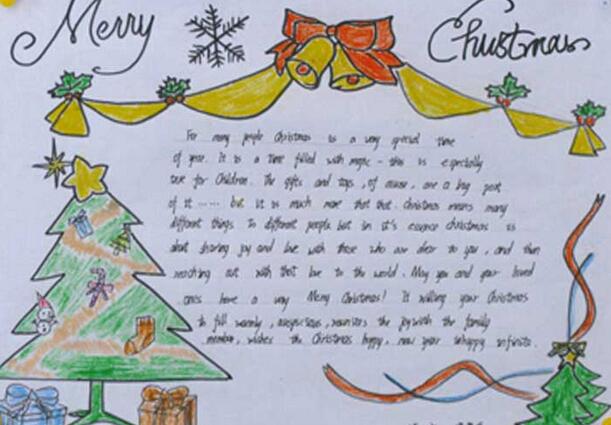 Merry Christmas
For many people Christmas is a very special time
of year. It is a time filled with magic - this is especially
true for Children. The gifts and toys, of course, are a big part
of it ...... but it is much more that that. Christmas means many
different things to different people but in it's essence christmas is
about sharing joy and love with those who are dear to you, and then
reaching out with that love to the world. May you and your loved
ones have a very Merry Christmas! Is willing your Christmas
to fill warmly, auspicious, the joy with the family
member, wishes the Christmas happy, new year happy infinite.